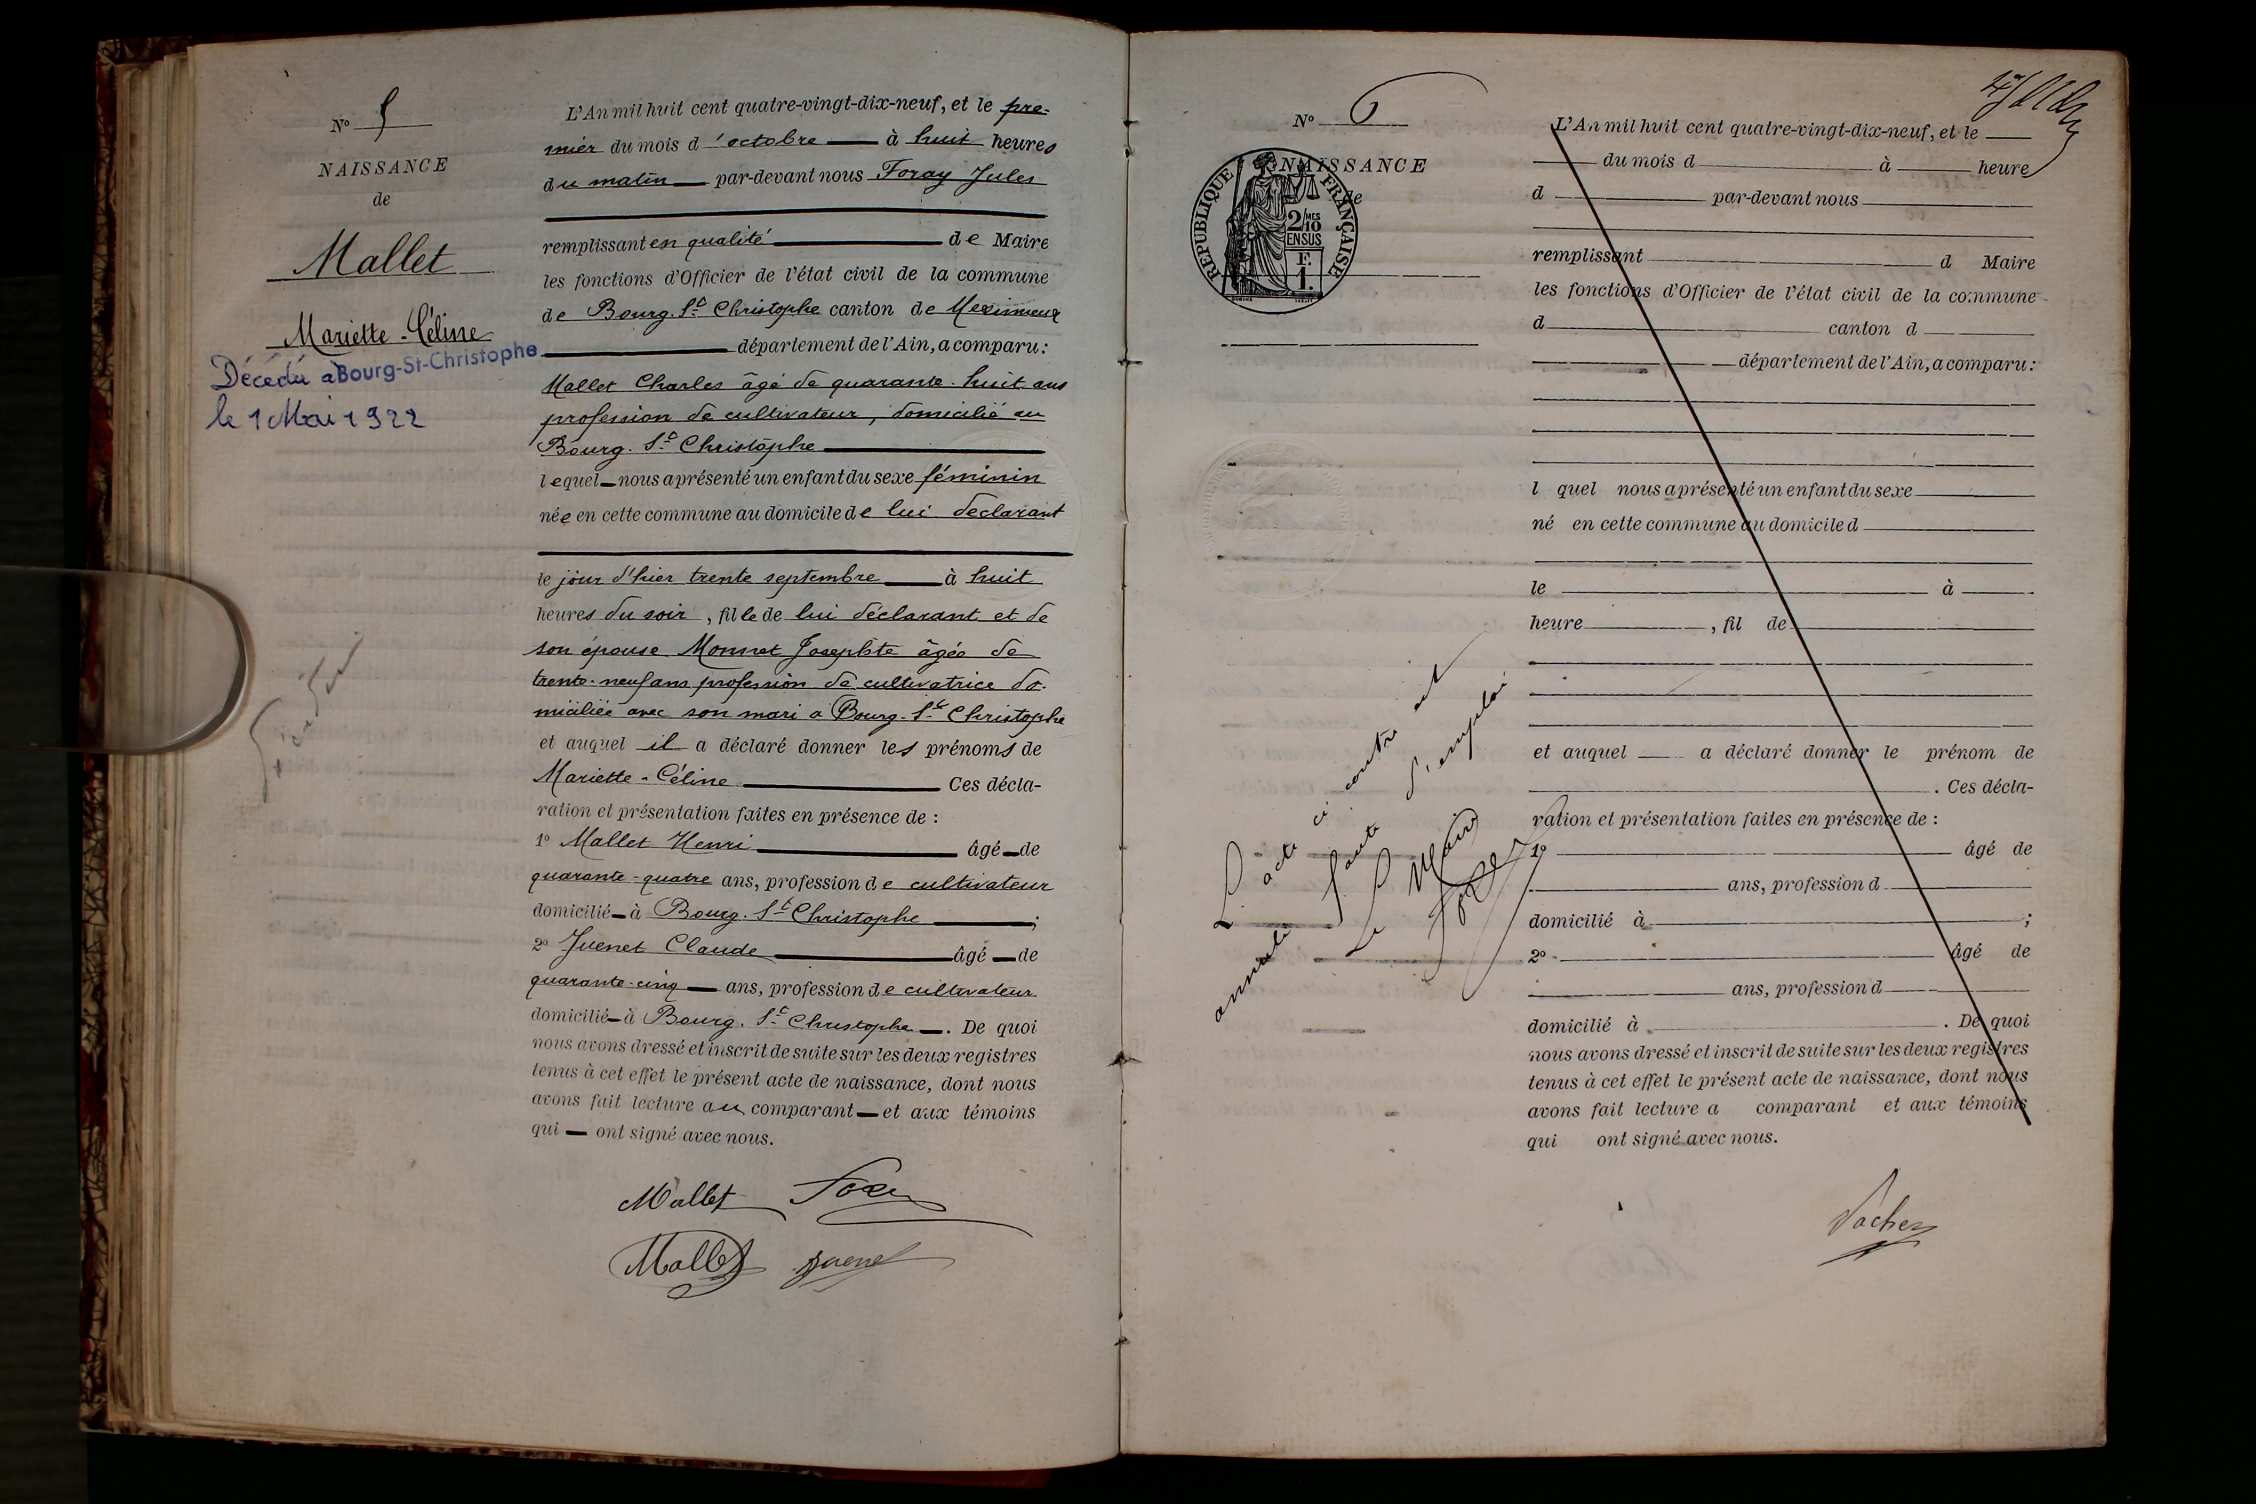 Nº 5
NAISSANCE
de
Mallet
Mariette-Céline
Décédée à Bourg-St-Christophe
le 1 Mai 1922
L'An mil huit cent quatre-vingt-dix-neuf, et le pre-
mier du mois d'octobre — à huit heures
du matin — par-devant nous Foray Jules
remplissant en qualité — de Maire
les fonctions d'Officier de l'état civil de la commune
de Bourg-St Christophe canton de Meximieux
— département de l'Ain, a comparu :
Mallet Charles âgé de quarante-huit ans
profession de cultivateur, domicilié au
Bourg-St Christophe —
lequel — nous a présenté un enfant du sexe féminin
née en cette commune au domicile de lui déclarant
le jour d'hier trente septembre — à huit
heures du soir, fille de lui déclarant et de
son épouse Monnet Josephte âgée de
trente-neuf ans profession de cultivatrice do-
miciliée avec son mari à Bourg-St Christophe
et auquel il a déclaré donner les prénoms de
Mariette-Céline — Ces décla-
ration et présentation faites en présence de :
1º Mallet Henri — âgé — de
quarante-quatre ans, profession de cultivateur
domicilié — à Bourg-St Christophe — ;
2º Juenet Claude — âgé — de
quarante-cinq — ans, profession de cultivateur
domicilié — à Bourg-St Christophe — . De quoi
nous avons dressé et inscrit de suite sur les deux registres
tenus à cet effet le présent acte de naissance, dont nous
avons fait lecture au comparant — et aux témoins
qui — ont signé avec nous.
Mallet Foray
Mallet Juenet
Nº 6
NAISSANCE
de
REPUBLIQUE FRANÇAISE
2/10 MES
EN SUS
F.
1.
L'acte ci contre est
annulé faute d'emploi
Le Maire
Foray
L'An mil huit cent quatre-vingt-dix-neuf, et le
du mois d à heure
d par-devant nous
remplissant d Maire
les fonctions d'Officier de l'état civil de la commune
d canton d
département de l'Ain, a comparu :
l quel nous a présenté un enfant du sexe
né en cette commune au domicile d
le à
heure , fil de
et auquel a déclaré donner le prénom de
. Ces décla-
ration et présentation faites en présence de :
1º âgé de
ans, profession d
domicilié à ;
2º âgé de
ans, profession d
domicilié à . De quoi
nous avons dressé et inscrit de suite sur les deux registres
tenus à cet effet le présent acte de naissance, dont nous
avons fait lecture a comparant et aux témoins
qui ont signé avec nous.